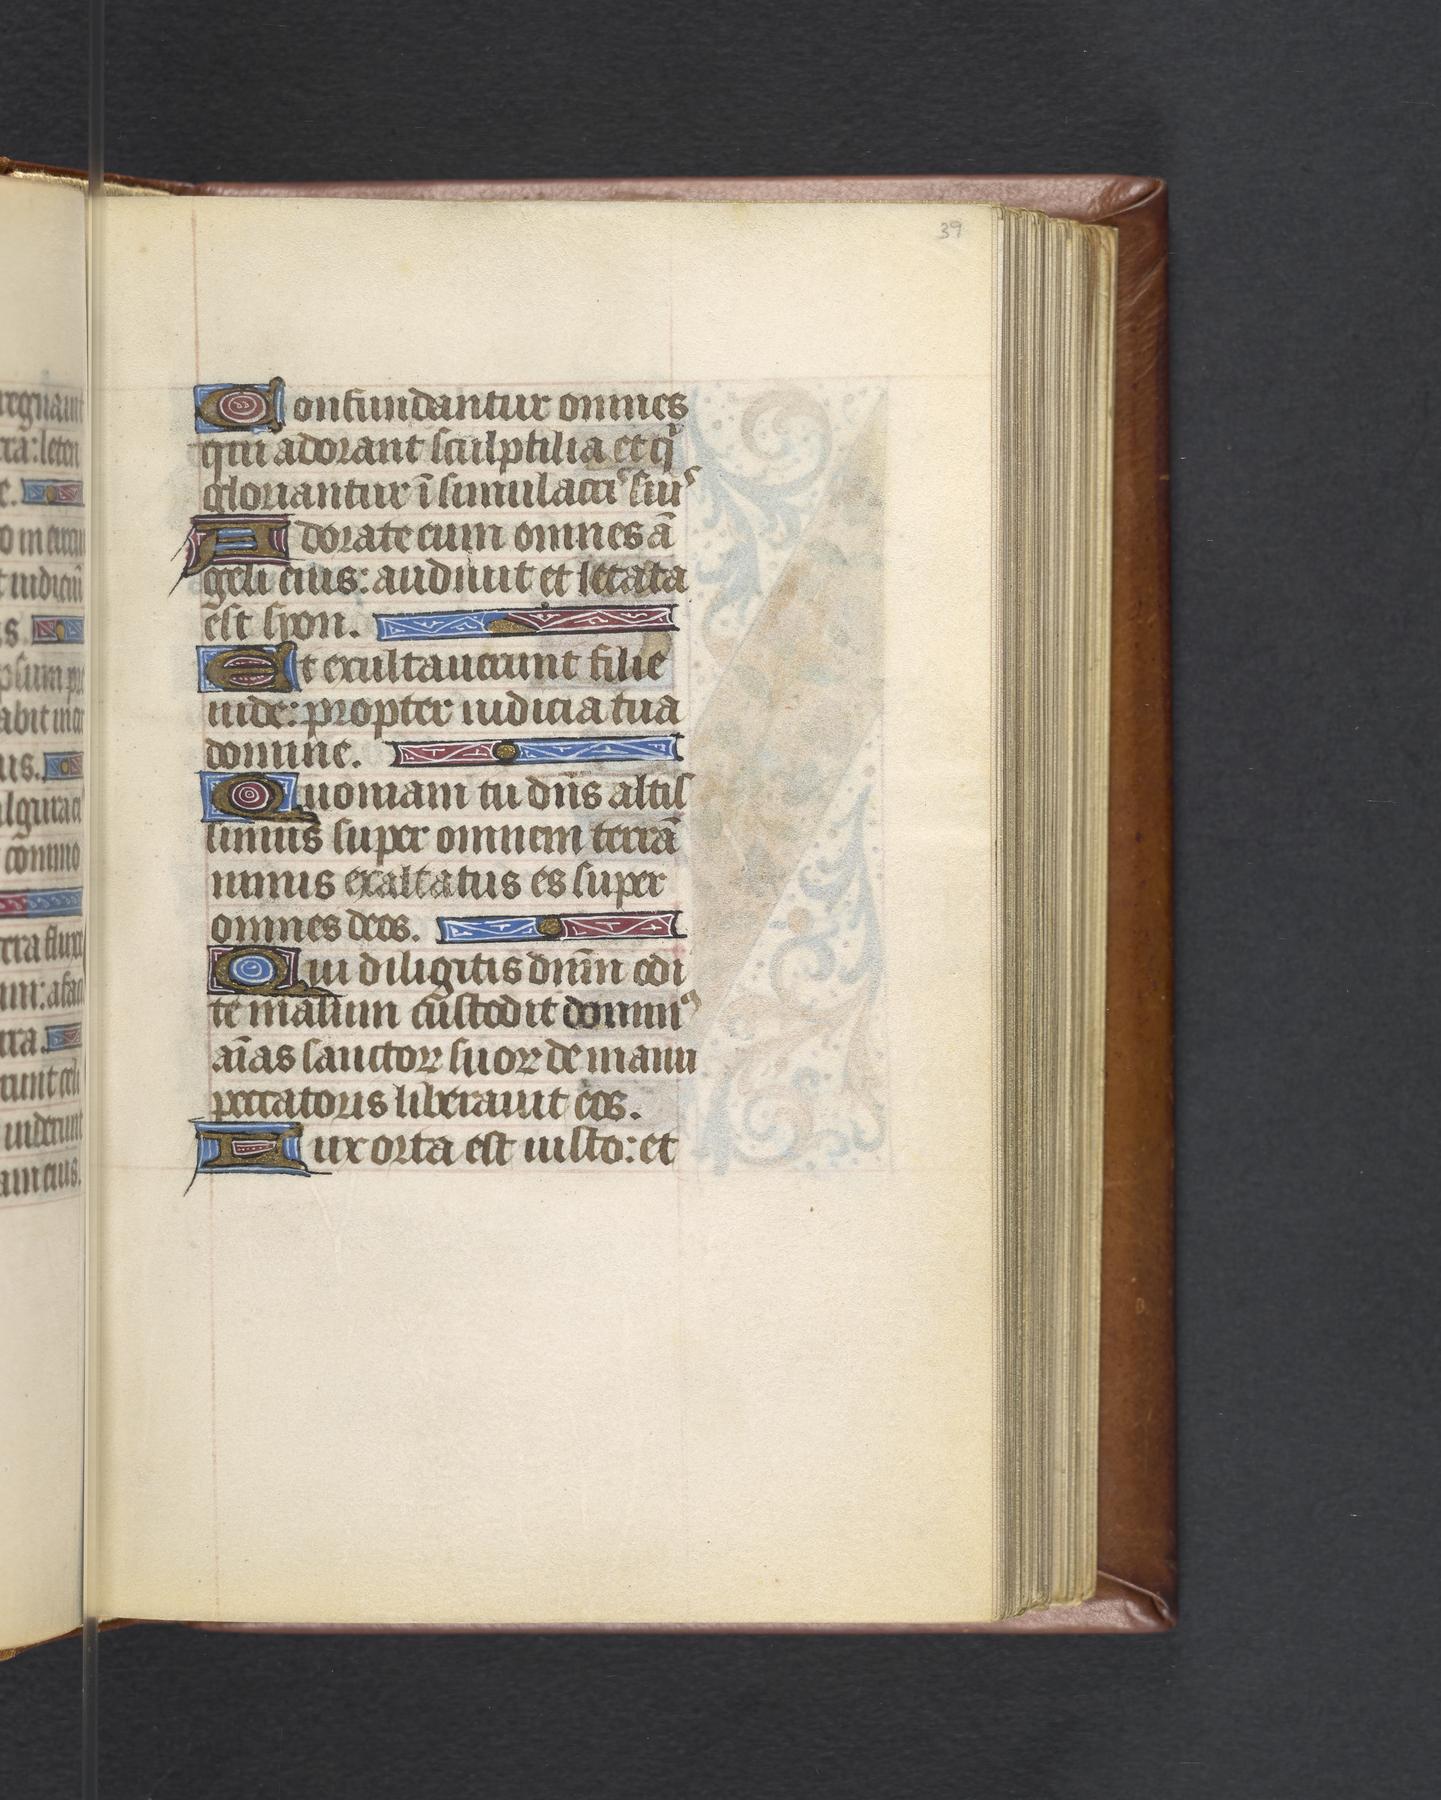 39
Confundantur omnes
qui adorant sculptilia et q̄
gloriantur ī simulacrꝭ suꝭ
Adorate eum omnes ā
geli eius: audiuit et letata
est syon.
Et exultauerunt filie
iude: propter iudicia tua
domine.
Quoniam tu dn̄s altis
simus super omnem terrā
nimis exaltatus es super
omnes deos.
Qui diligitis dnm̄ odi
te malum custodit dominꝰ
aīas sanctoꝝ suoꝝ de manu
peccatoris liberauit eos.
Lux orta est iusto: et